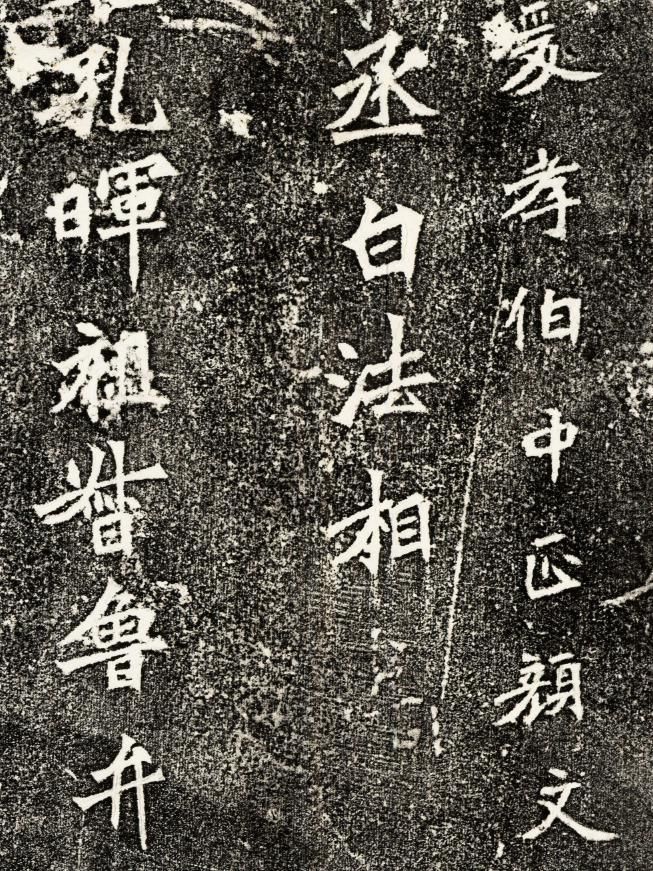 爰孝伯中正顏文
丞白法相
孔暉祖昔魯弁